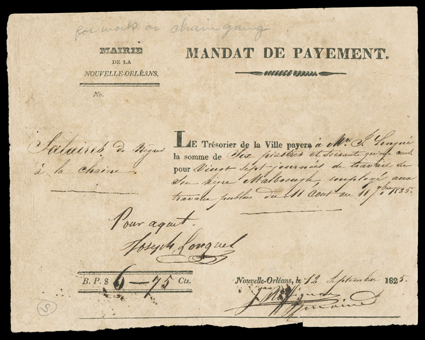 for work on chain gang
MAIRIE
DE LA
NOUVELLE-ORLÉANS.
No.
MANDAT DE PAYEMENT.
Salaires de Nègres
à la chaîne
LE Trésorier de la Ville payera à Mr. J.
la somme de Six piastres et soixante quinze cents
pour Vingt sept journées de travail de
Son nègre employé aux
travaux publics du 11 Aout au 11 1825.
Pour aquit.
Joseph
B. P. $ 6-75 Cts.
Nouvelle-Orléans, le 12 Septembre 1825.